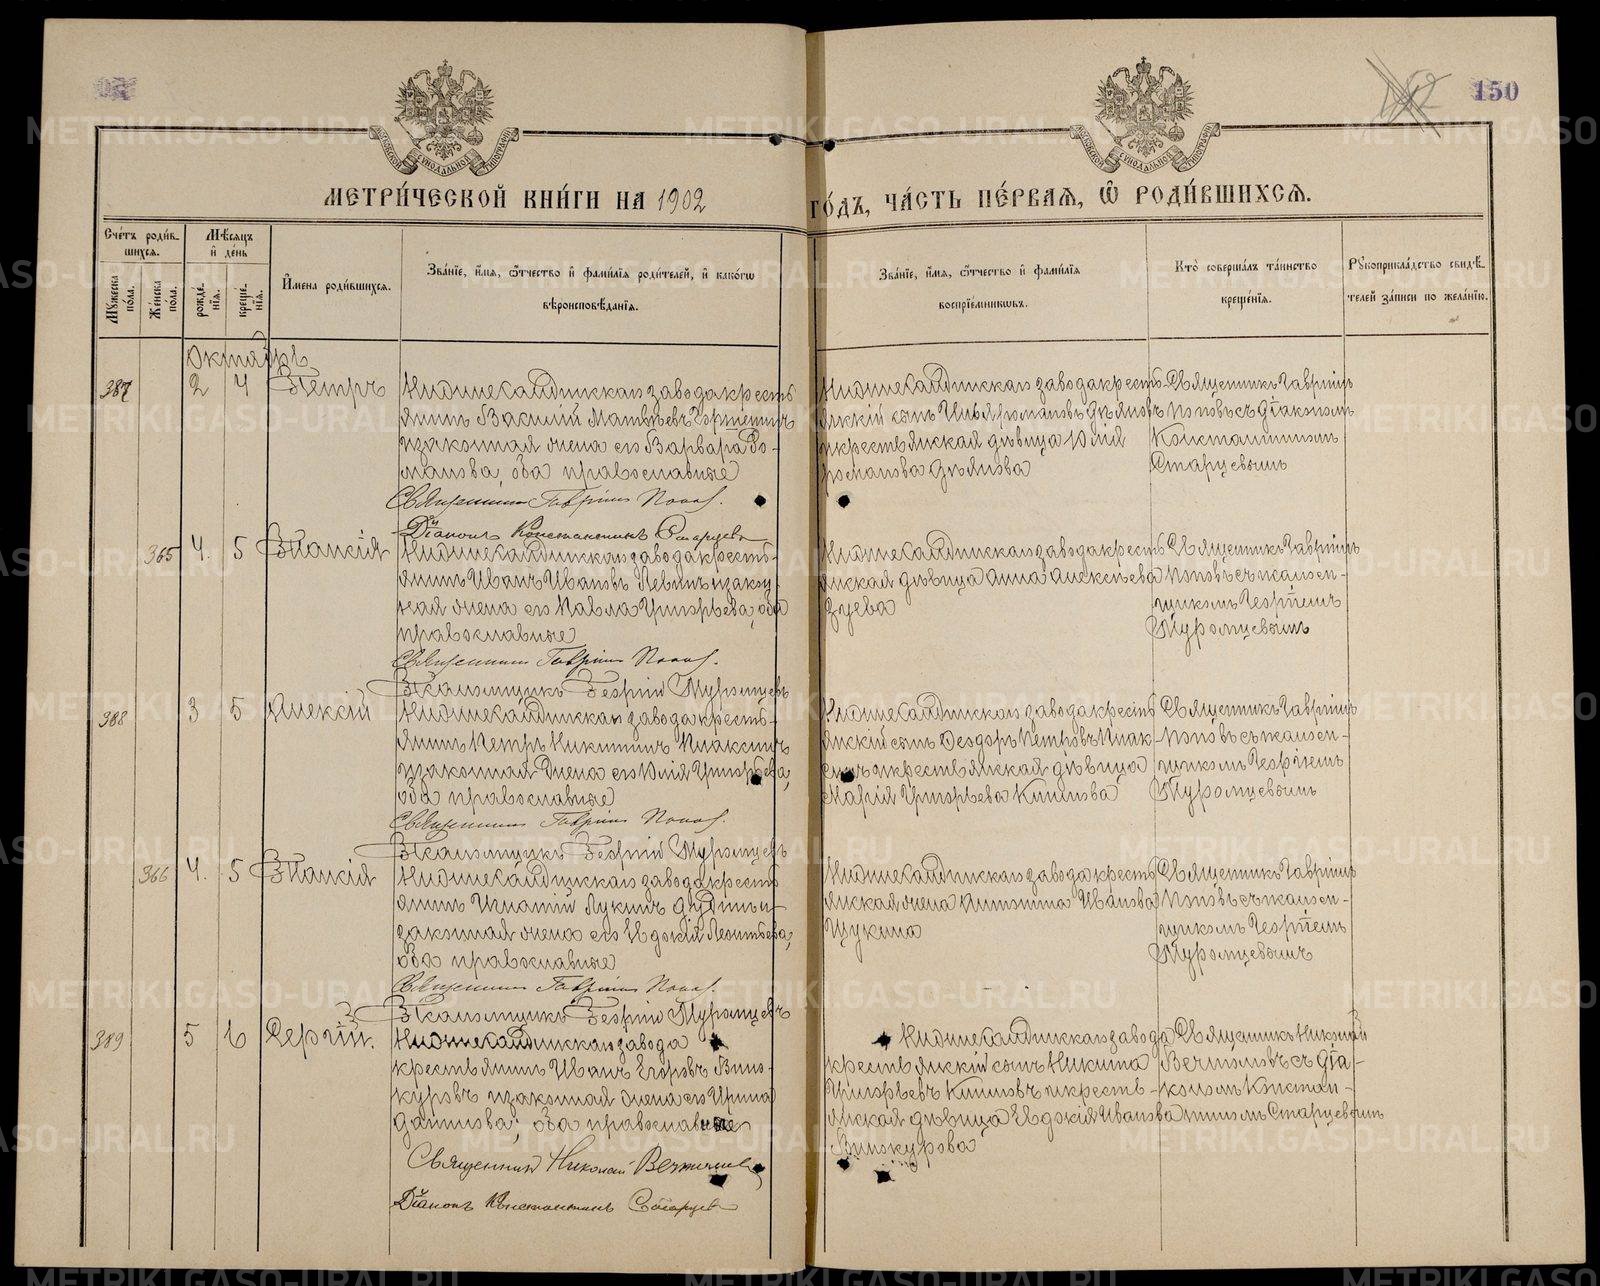 150
МЕТРИ́ЧЕСКОЙ КНИ́ГИ НА 1902
ГО́ДЪ, ЧА́СТЬ ПЕ́РВАЯ, Ѡ РОДИ́ВШИХСЯ.
Сче́тъ роди́в-
шихся.
Му́жеска по́ла.
Же́нска по́ла.
Мѣ́сяцъ
и́ де́нь
рожде́-
нїя.
креще́-
нїя.
И́мена роди́вшихся.
Зва́нїе, и́мя, ѻ́тчество и́ фами́лїя роди́телей, и́ како́гѡ
вѣроисповѣ́данїя.
Зва́нїе, и́мя, ѻ́тчество и́ фами́лїя
воспрїе́мникѡвъ.
Кто̀ соверша́лъ та́инство
креще́нїя.
Рꙋкоприкла́дство свидѣ́-
телей за́писи по жела́нїю.
Октябрь
387
2
4
Петръ
Нижнесалдинскаго завода кресть-
янинъ Василій Матвѣевъ
и законная жена его Варвара Ро-
манова, оба православные
Священникъ Гавріилъ Поповъ.
Діаконъ Константинъ Старцевъ
Нижнесалдинскаго завода кресть-
янскій сынъ Илья Романовъ Зуяновъ
и крестьянская дѣвица Юлія
Романова
Священникъ Гавріилъ
Поповъ съ діакономъ
Константиномъ
Старцевымъ
365
4.
5
Таисія
Нижнесалдинскаго завода кресть-
янинъ Иванъ Ивановъ и закон-
ная жена его Павла Григорьева, оба
православные
Священникъ Гавріилъ Поповъ.
Псаломщикъ Георгій Муромцевъ
Нижнесалдинскаго завода кресть-
янская дѣвица Анна Алексѣева
Зуева
Священникъ Гавріилъ
Поповъ съ псалом-
щикомъ Георгіемъ
Муромцевымъ
388
3
5
Алексій
Нижнесалдинскаго завода кресть-
янинъ Петръ Никитинъ
и законная жена его Юлія Григорьева,
оба православные
Священникъ Гавріилъ Поповъ.
Псаломщикъ Георгій Муромцевъ
Нижнесалдинскаго завода кресть-
янскій сынъ Ѳеодоръ Петровъ
и крестьянская дѣвица
Марія Григорьева
Священникъ Гавріилъ
Поповъ съ псалом-
щикомъ Георгіемъ
Муромцевымъ
366
4.
5
Таисія
Нижнесалдинскаго завода кресть-
янинъ Игнатій Лукинъ и
законная жена его Евдокія Леонтьева,
оба православные
Священникъ Гавріилъ Поповъ.
Псаломщикъ Георгій Муромцевъ
Нижнесалдинскаго завода кресть-
янская жена Антонина Иванова
Щукина
Священникъ Гавріилъ
Поповъ съ псалом-
щикомъ Георгіемъ
Муромцевымъ
389
5
6
Сергій.
Нижнесалдинскаго завода
крестьянинъ Иванъ Егоровъ Вино-
куровъ и законная жена его Ирина
Данилова, оба православные
Священникъ Николай
Діаконъ Константинъ Старцевъ
Нижнесалдинскаго завода
крестьянскій сынъ Никита
Григорьевъ и кресть-
янская дѣвица Евдокія Иванова
Винокурова
Священникъ Николай
съ діа-
кономъ Констан-
тиномъ Старцевымъ
METRIKI.GASO-URAL.RU